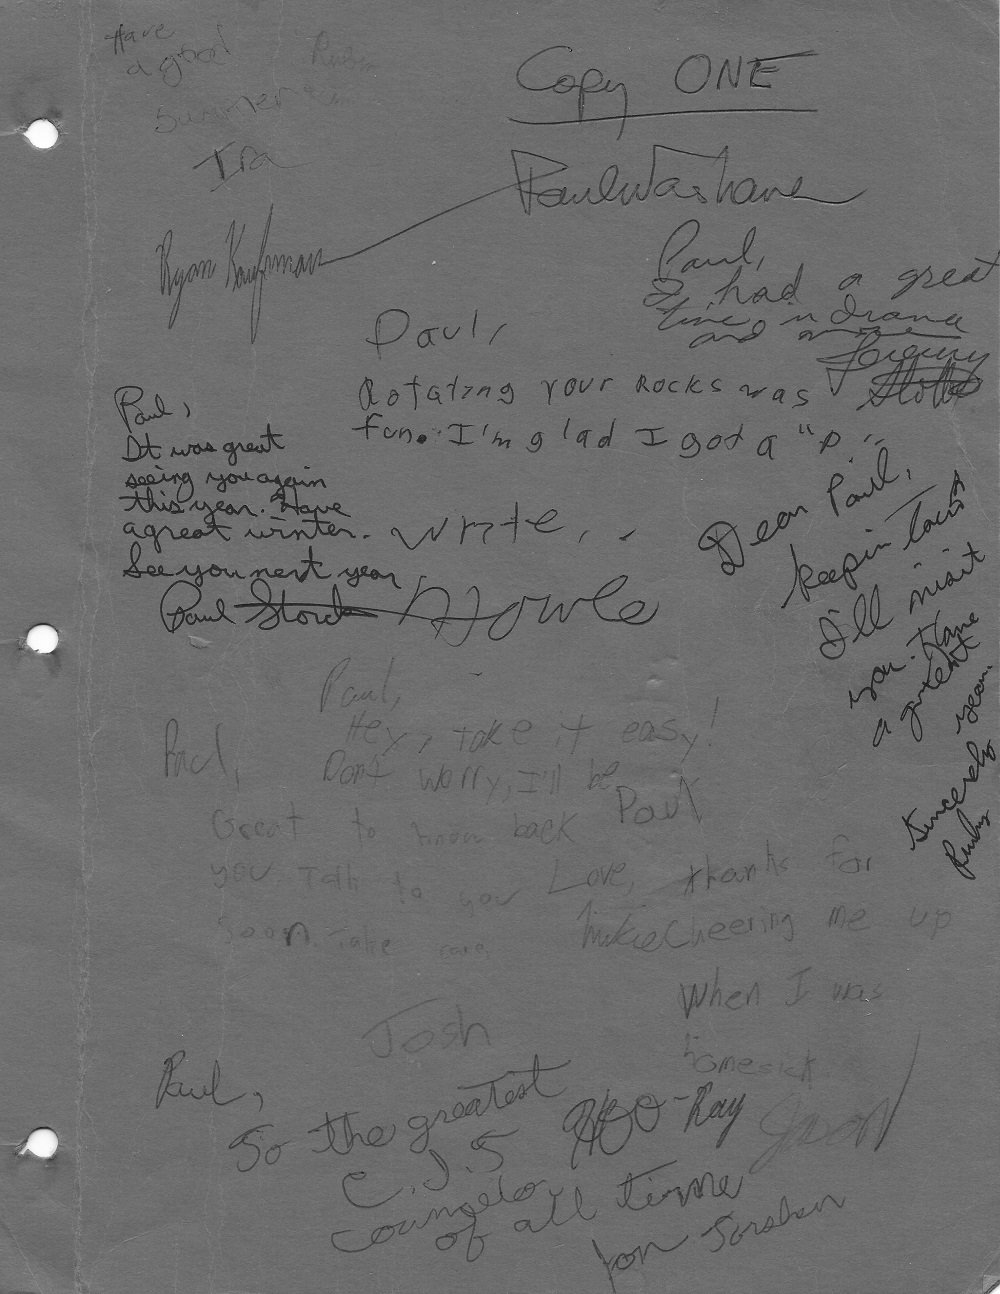 Have
a good
Summer
Ira
Copy ONE
Ryan Kaufman
Paul,
I had a great
time in drama
and
Paul,
Rotating your Rocks was
fun. I'm glad I got a "P."
write..
Paul,
It was great
seeing you again
this year. Have
a great winter.
See you next year
Paul
Dear Paul,
keep in touch
I'll visit
you. Have
a great
year.
Sincerely
Ruby
Paul,
Hey, take it easy!
Don't worry, I'll be
back
Love,
Mikie
Paul,
Great to know
you. Talk to you
Soon. Take care,
Josh
Paul
thanks for
Cheering me up
When I was
homesick.
Jason
Paul,
To the greatest
C.J.S
counselor
of all time
Jon